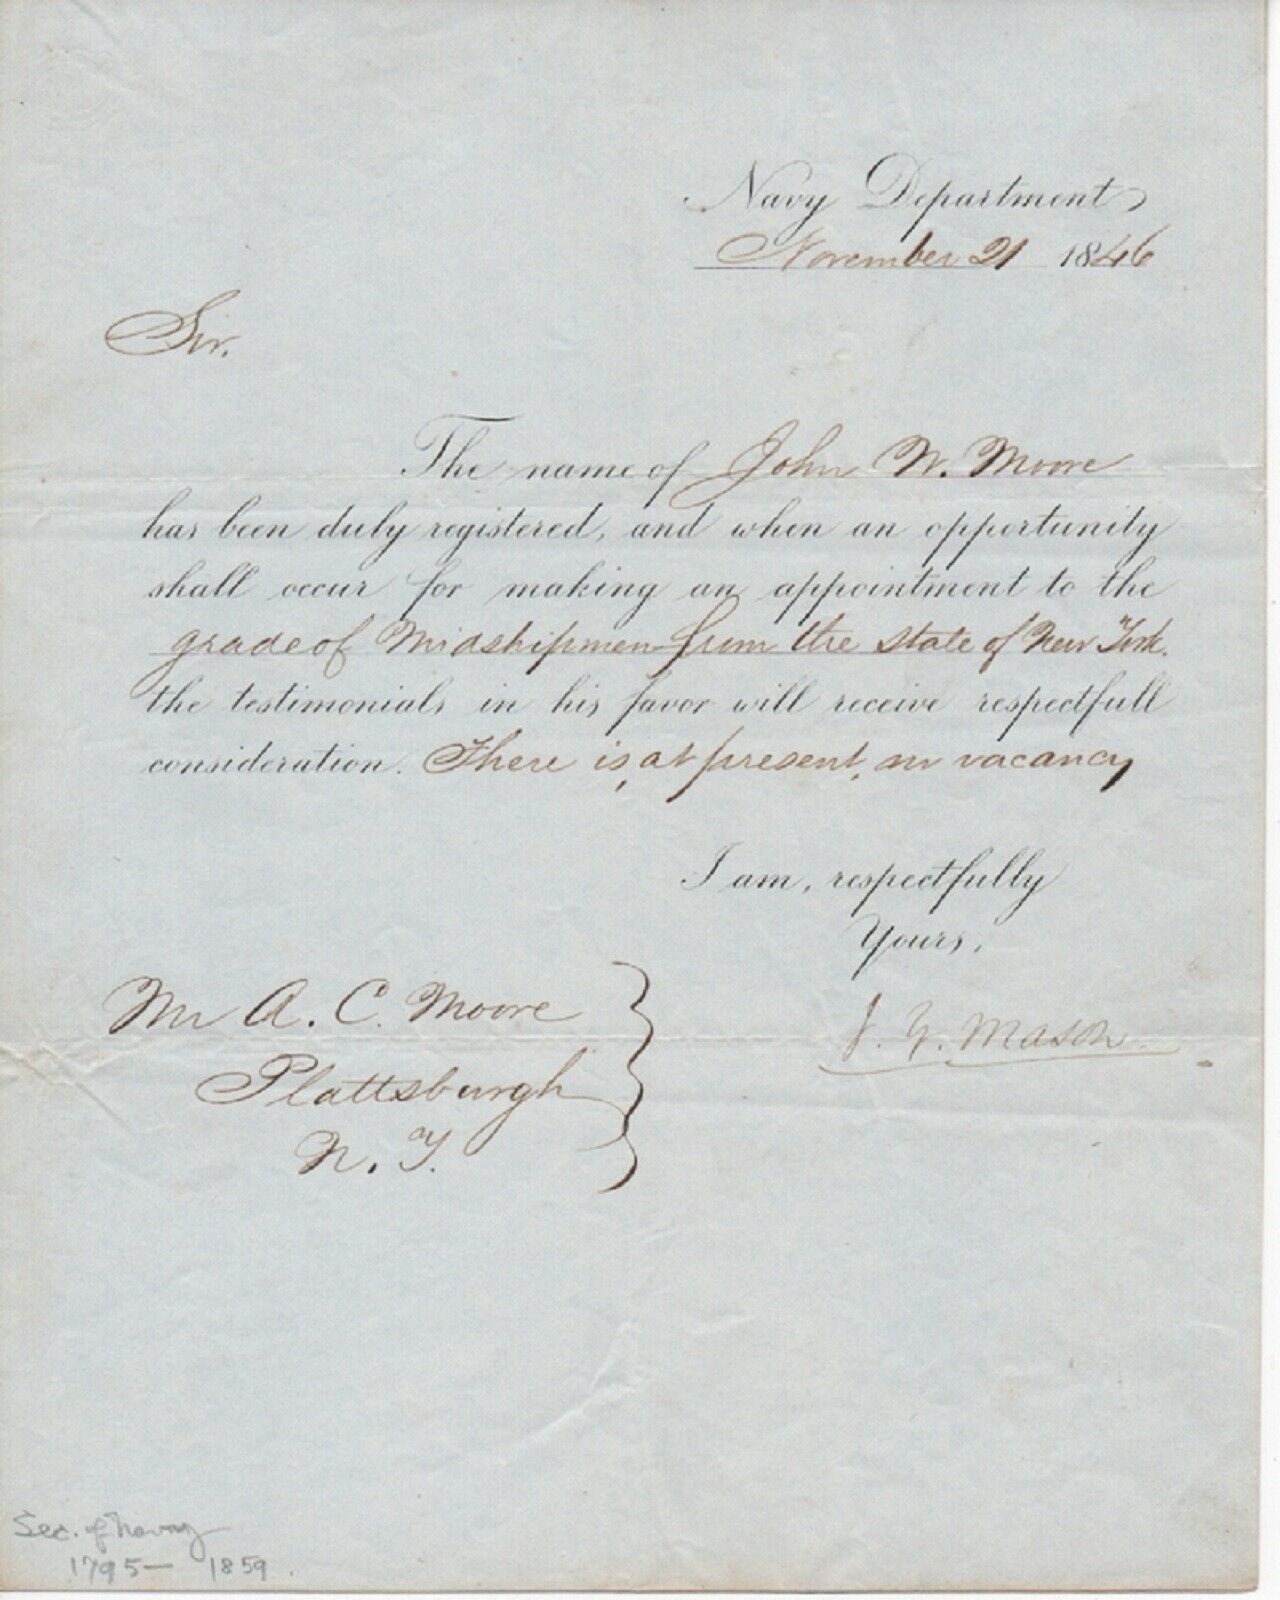 Navy Department
November 21 1846
Sir.
The name of John W. Moore
has been duly registered, and when an opportunity
shall occur for making an appointment to the
grade of Midshipmen from the State of New York.
the testimonials in his favor will receive respectfull
consideration. There is, at present, no vacancy
I am, respectfully
Yours,
J. Y. Mason
Mr A. C. Moore
Plattsburgh
N. Y.
Sec. of Navy
1795— 1859.